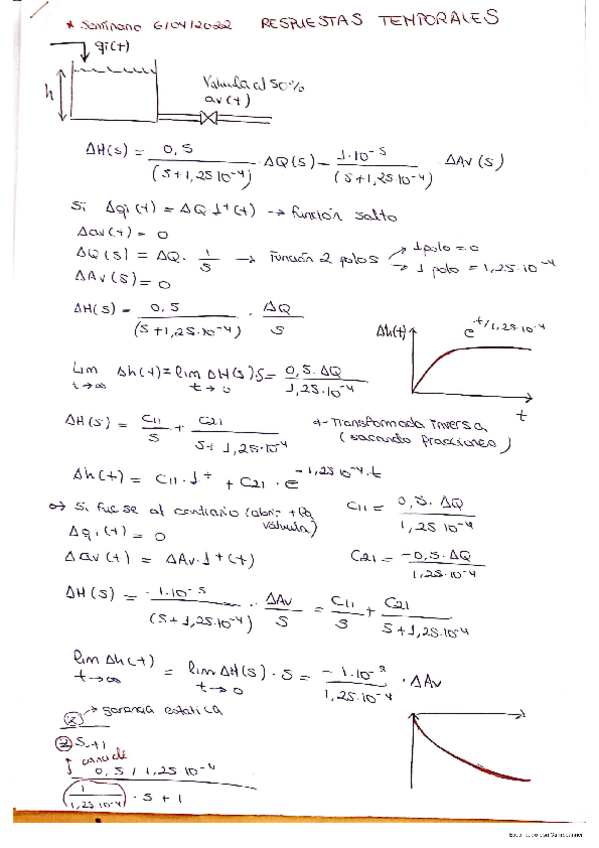 * Seminario 6/04/2022 RESPUESTAS TEMPORALES
qi(t)
h
Válvula al 50%
av(t)
ΔH(s) = 0,5 / (s+1,25·10⁻⁴) · ΔQ(s) − 1·10⁻⁵ / (s+1,25·10⁻⁴) ΔAv(s)
Si Δqi(t) = ΔQ 1⁺(t) → función salto
Δav(t) = 0
ΔQ(s) = ΔQ · 1/s → Función 2 polos → 1 polo = 0
→ 1 polo = 1,25·10⁻⁴
ΔAv(s) = 0
ΔH(s) = 0,5 / (s+1,25·10⁻⁴) · ΔQ/s
Δh(t)
e^-t/1,25·10⁻⁴
t
Lim t→∞ Δh(t) = lim t→0 ΔH(s) s = 0,5·ΔQ / 1,25·10⁻⁴
ΔH(s) = C11/s + C21 / s+1,25·10⁻⁴
Transformada inversa
(sacando fracciones)
Δh(t) = C11·1⁺ + C21·e^-1,25·10⁻⁴·t
Si fuese al contrario (abrir + la válvula)
C11 = 0,5·ΔQ / 1,25·10⁻⁴
Δqi(t) = 0
Δav(t) = ΔAv·1⁺(t)
C21 = -0,5·ΔQ / 1,25·10⁻⁴
ΔH(s) = -1·10⁻⁵ / (s+1,25·10⁻⁴) · ΔAv/s = C11/s + C21 / s+1,25·10⁻⁴
lim t→∞ Δh(t) = lim t→0 ΔH(s)·s = -1·10⁻⁵ / 1,25·10⁻⁴ · ΔAv
K → ganancia estática
2 s+1
0,5 / 1,25·10⁻⁴
1 / 1,25·10⁻⁴ · s + 1